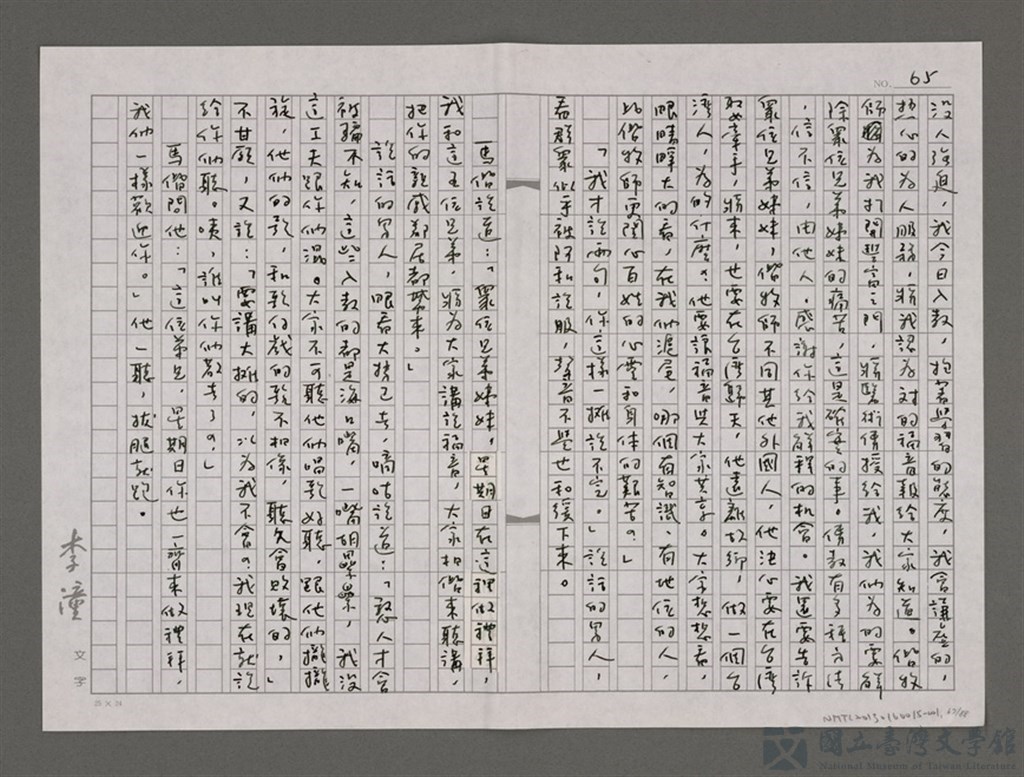 NO. 65
沒人強迫，我今日入教，抱著學習的態度，我會謙虛的，
熱心的為人服務，將我認為對的福音報給大家知道。偕牧
師願為我打開豐富之門，將醫術傳授給我，我們為的要解
除眾位兄弟姊妹的痛苦，這是確定的事。傳教有多種方法
，信不信，由他人。感謝你給我解釋的机會。我還要告訴
眾位兄弟妹妹，偕牧師不同其他外國人，他決心要在台灣
娶牽手，將來，也要在台灣歸天，他遠離故鄉，做一個台
灣人，為的什麼？他要讓福音與大家共享。大家想想看，
眼睛睜大的看，在我們滬尾，哪個有智識、有地位的人，
比偕牧師更關心百姓的心靈和身体的艱苦？」
「我才說兩句，你這樣一攤說不完。」說話的男人，
看群眾似乎被阿和說服，聲音不覺也和緩下來。
馬偕說道：「眾位兄弟姊妹，星期日在這裡做禮拜，
我和這五位兄弟，將為大家講說福音，大家相偕來聽講，
把你的親戚鄰居都帶來。」
說話的男人，眼看大勢已去，嘀咕說道：「憨人才會
被騙不知，這些入教的都是海口嘴，一嘴胡累累，我沒
這工夫跟你們混。大家不可聽他們唱歌好聽，跟他們攏攏
旋，他們的歌，和歌仔戲的歌不相像，聽久會敗壞的，」
不甘願，又說：「要講大攤的，以為我不會？我現在就說
給你們聽。唉，誰叫你們散去了？」
馬偕問他：「這位弟兄，星期日你也一齊來做禮拜，
我們一樣歡迎你。」他一聽，拔腿就跑。
李潼
文字
25 × 24
國立臺灣文學館
National Museum of Taiwan Literature